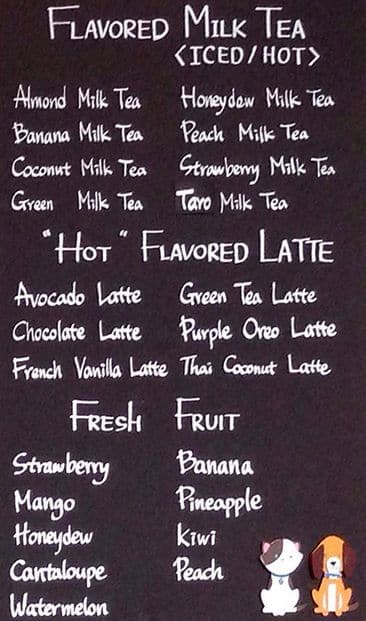 FLAVORED MILK TEA
<ICED/HOT>
Almond Milk Tea
Banana Milk Tea
Coconut Milk Tea
Green Milk Tea
Honeydew Milk Tea
Peach Milk Tea
Strawberry Milk Tea
Taro Milk Tea
"HOT" FLAVORED LATTE
Avocado Latte
Chocolate Latte
French Vanilla Latte
Green Tea Latte
Purple Oreo Latte
Thai Coconut Latte
FRESH FRUIT
Strawberry
Mango
Honeydew
Cantaloupe
Watermelon
Banana
Pineapple
Kiwi
Peach